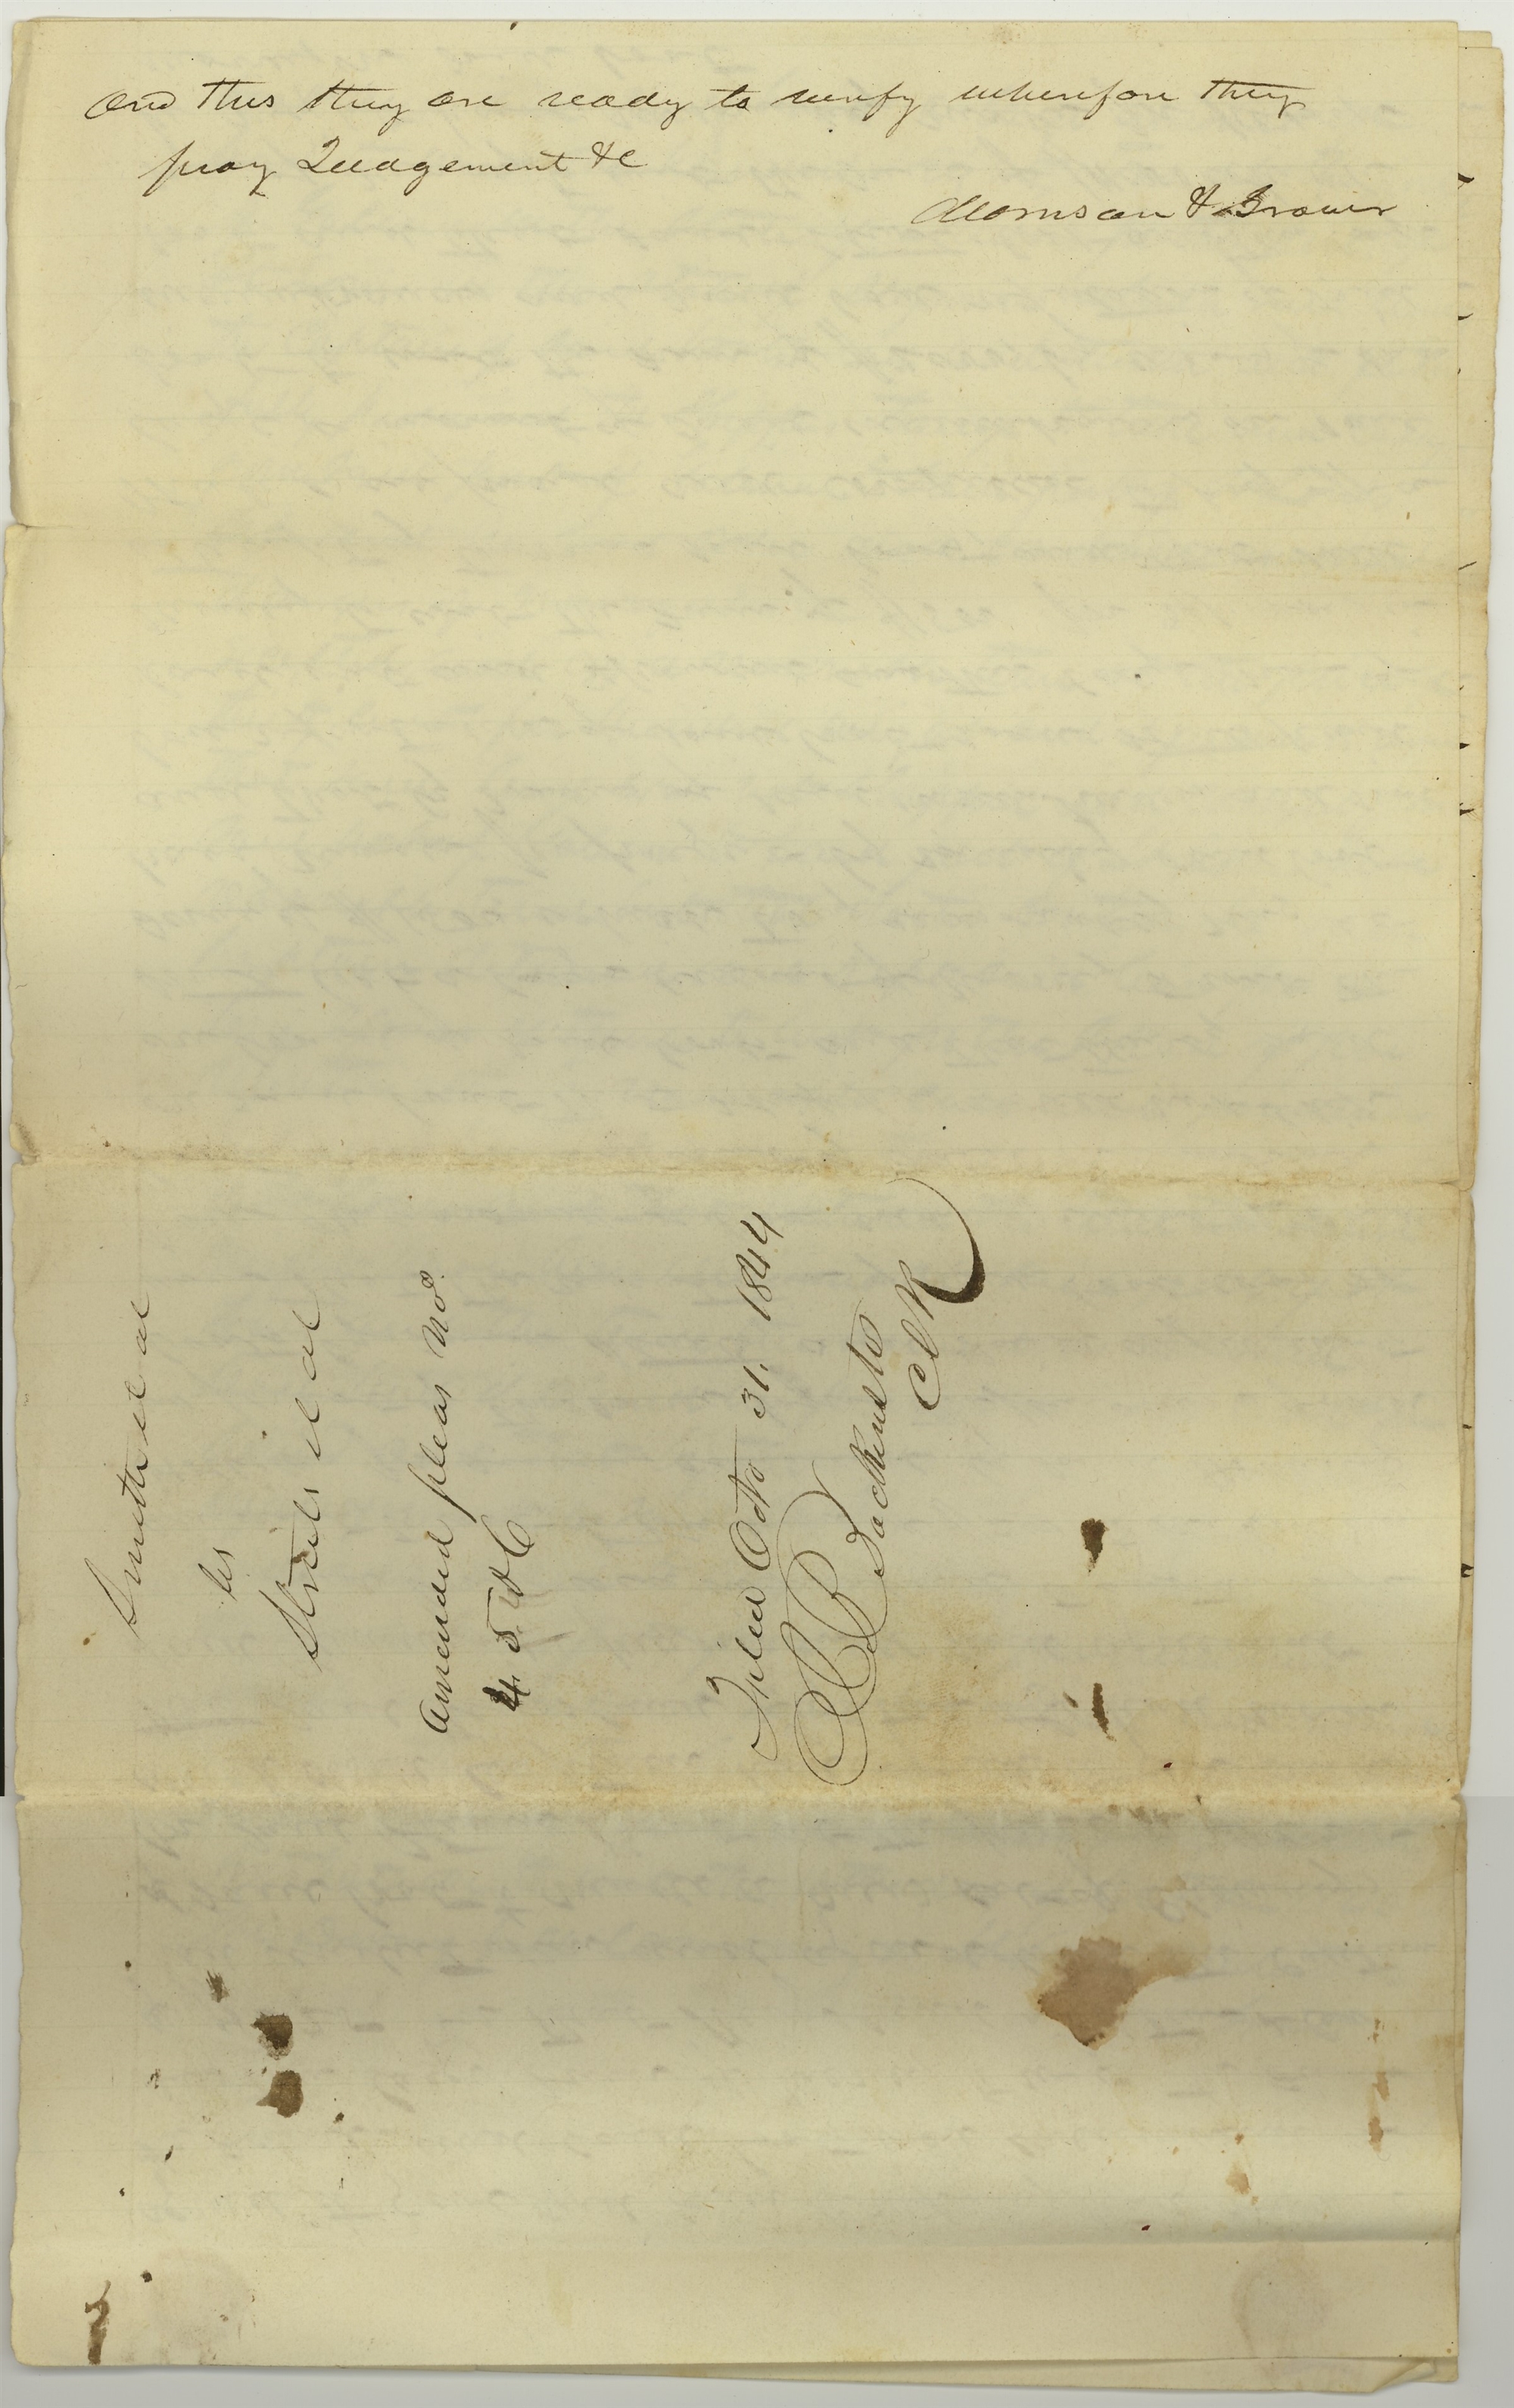 and this they are ready to verify wherefore they
pray Judgement &c
Morrison & Brown
Smith et al
vs
Street et al
Amended pleas no.
4. 5. & 6
Filed Octo 31. 1844
Backensto
Clk